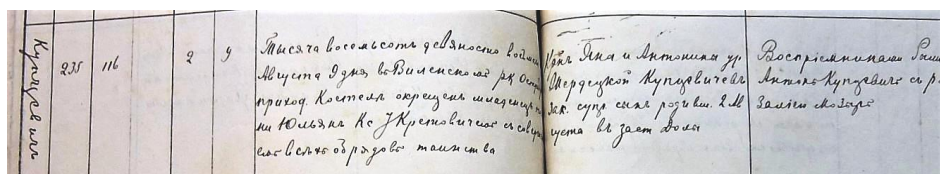 Купцевичъ
235 116 2 9
Тысяча восемьсотъ девяносто восьма
Августа 9 дня въ Виленской рк
приход. Костелѣ окрещенъ младенецъ
ни Юльянъ Кс J Кретовичемъ съ совер
емъ всѣхъ обрядовъ таинства
Яна и Антонины ур.
Купцевичевъ
зак. супр сынъ родивш. 2 Ав
густа въ заст Долы
Воспріемниками были
Антонъ Купцевичъ съ